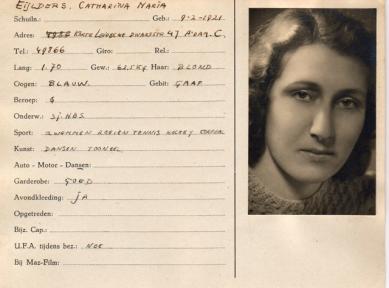 Eijlders, Catharina Maria
Schuiln.: Geb.: 9-2-1921.
Adres: Korte Leidsche Dwarsstr 47 A'dam. C.
Tel.: 49866 Giro: Rel.:
Lang: 1.70 Gew.: 62.5 Kg Haar: Blond
Oogen: Blauw. Gebit: Gaaf
Beroep:
Onderw.: 3j. H.B.S.
Sport: Zwemmen Roeien Tennis Hockey
Kunst: Dansen Tooneel
Auto - Motor - Dansen:
Garderobe: Goed
Avondkleeding: Ja
Opgetreden:
Bijz. Cap.:
U.F.A. tijdens bez.: Nee
Bij Maz-Film: